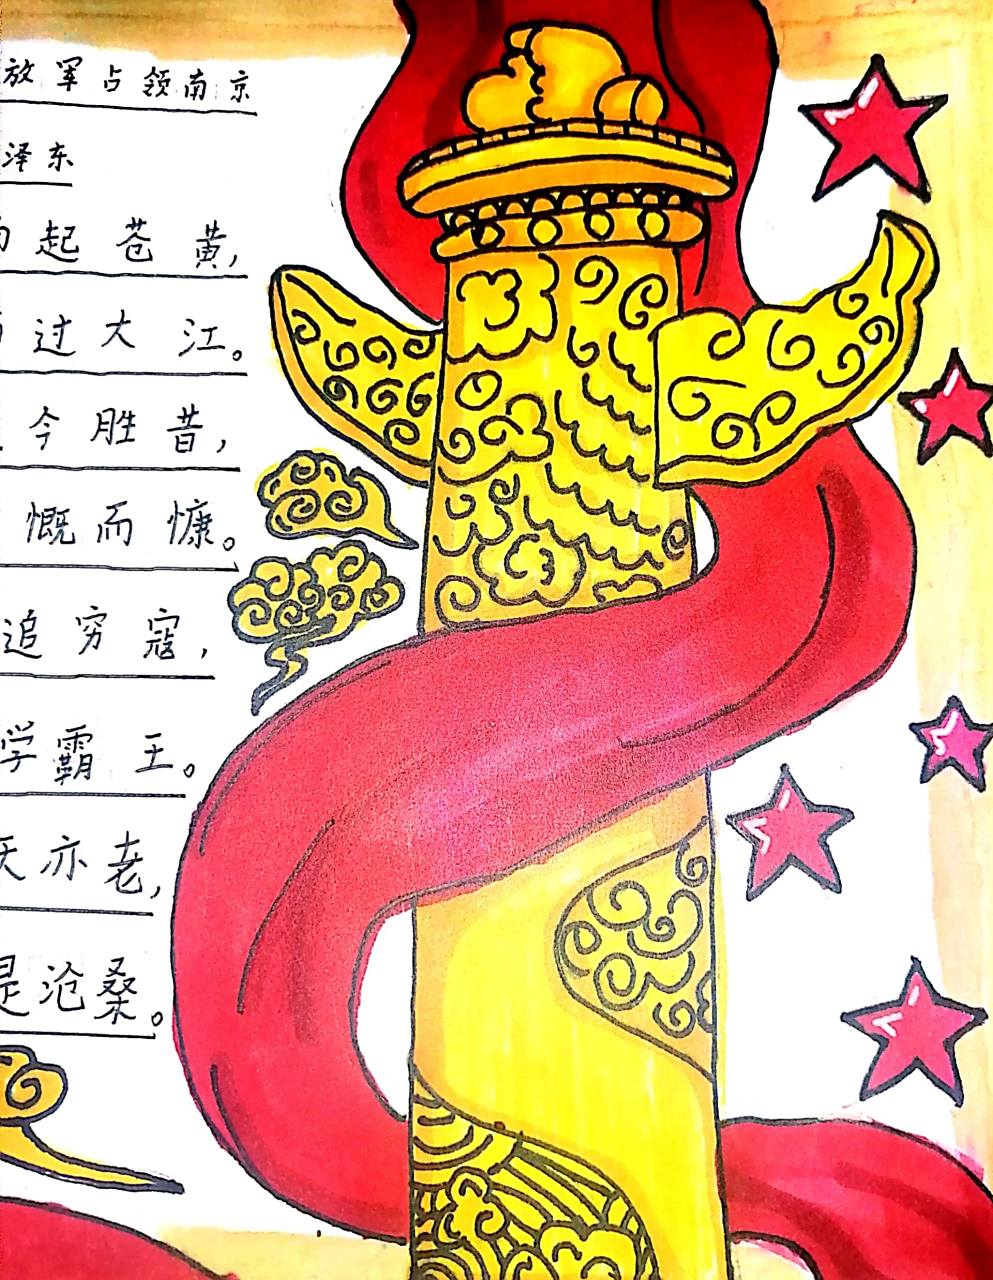 放军占领南京
泽东
起苍黄，
过大江。
今胜昔，
慨而慷。
追穷寇，
学霸王。
天亦老，
是沧桑。